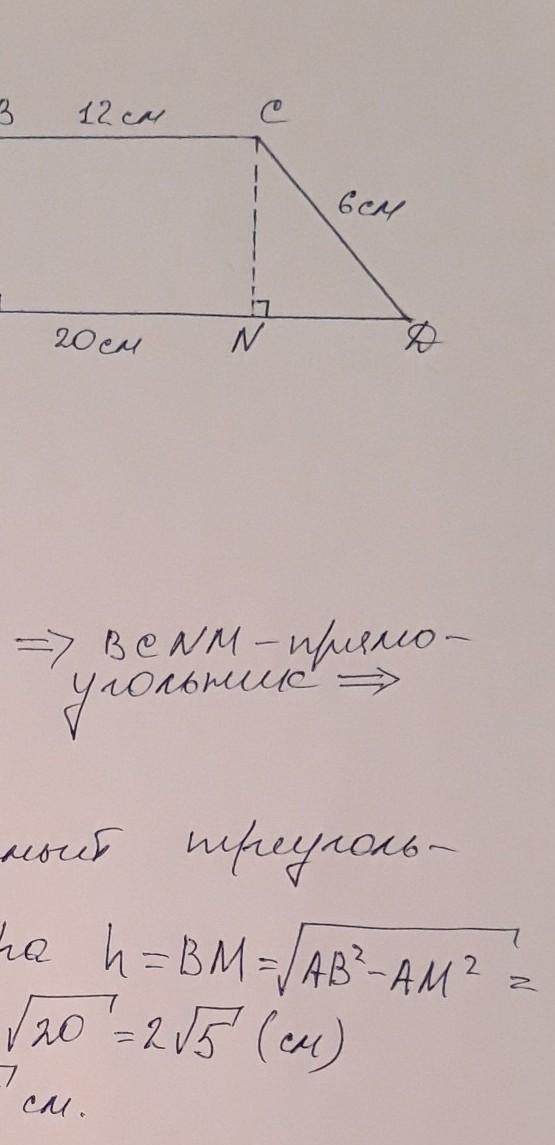 B 12 см C
6 см
20 см N D
⇒ BCNM – прямо-
угольник ⇒
мый треуголь-
на h = BM = √(AB² – AM²) =
√20 = 2√5 (см)
см.